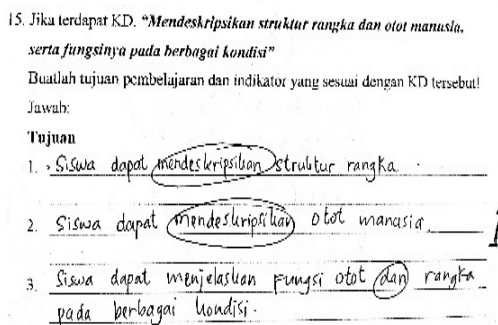 15. Jika terdapat KD. "Mendeskripsikan struktur rangka dan otot manusia,
serta fungsinya pada berbagai kondisi"
Buatlah tujuan pembelajaran dan indikator yang sesuai dengan KD tersebut!
Jawab:
Tujuan
1. Siswa dapat mendeskripsikan struktur rangka.
2. Siswa dapat mendeskripsikan otot manusia
3. Siswa dapat menjelaskan fungsi otot dan rangka
pada berbagai kondisi.